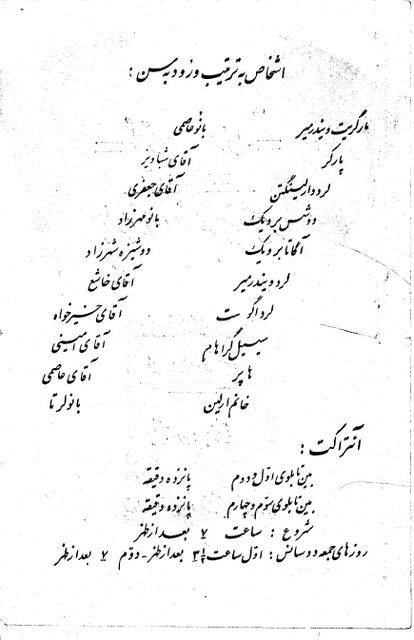 اشخاص به ترتیب ورود به سن :
مارگریت ویندرمیر بانو عاصمی
پارکر آقای شباویز
لرد دارلینگتن آقای جعفری
دوشس برویک بانو مهرزاد
آگاتا برویک دوشیزه شهرزاد
لرد ویندرمیر آقای خاشع
لرد اگوست آقای خیرخواه
سیسیل گراهام آقای امینی
هاپر آقای عاصمی
خانم ارلین بانو لرتا
آنتراکت :
بین تابلوی اول و دوم پانزده دقیقه
بین تابلوی سوم و چهارم پانزده دقیقه
شروع : ساعت ۷ بعد از ظهر
روزهای جمعه دو سانس : اول ساعت ۳½ بعد از ظهر - دوم ۷ بعد از ظهر